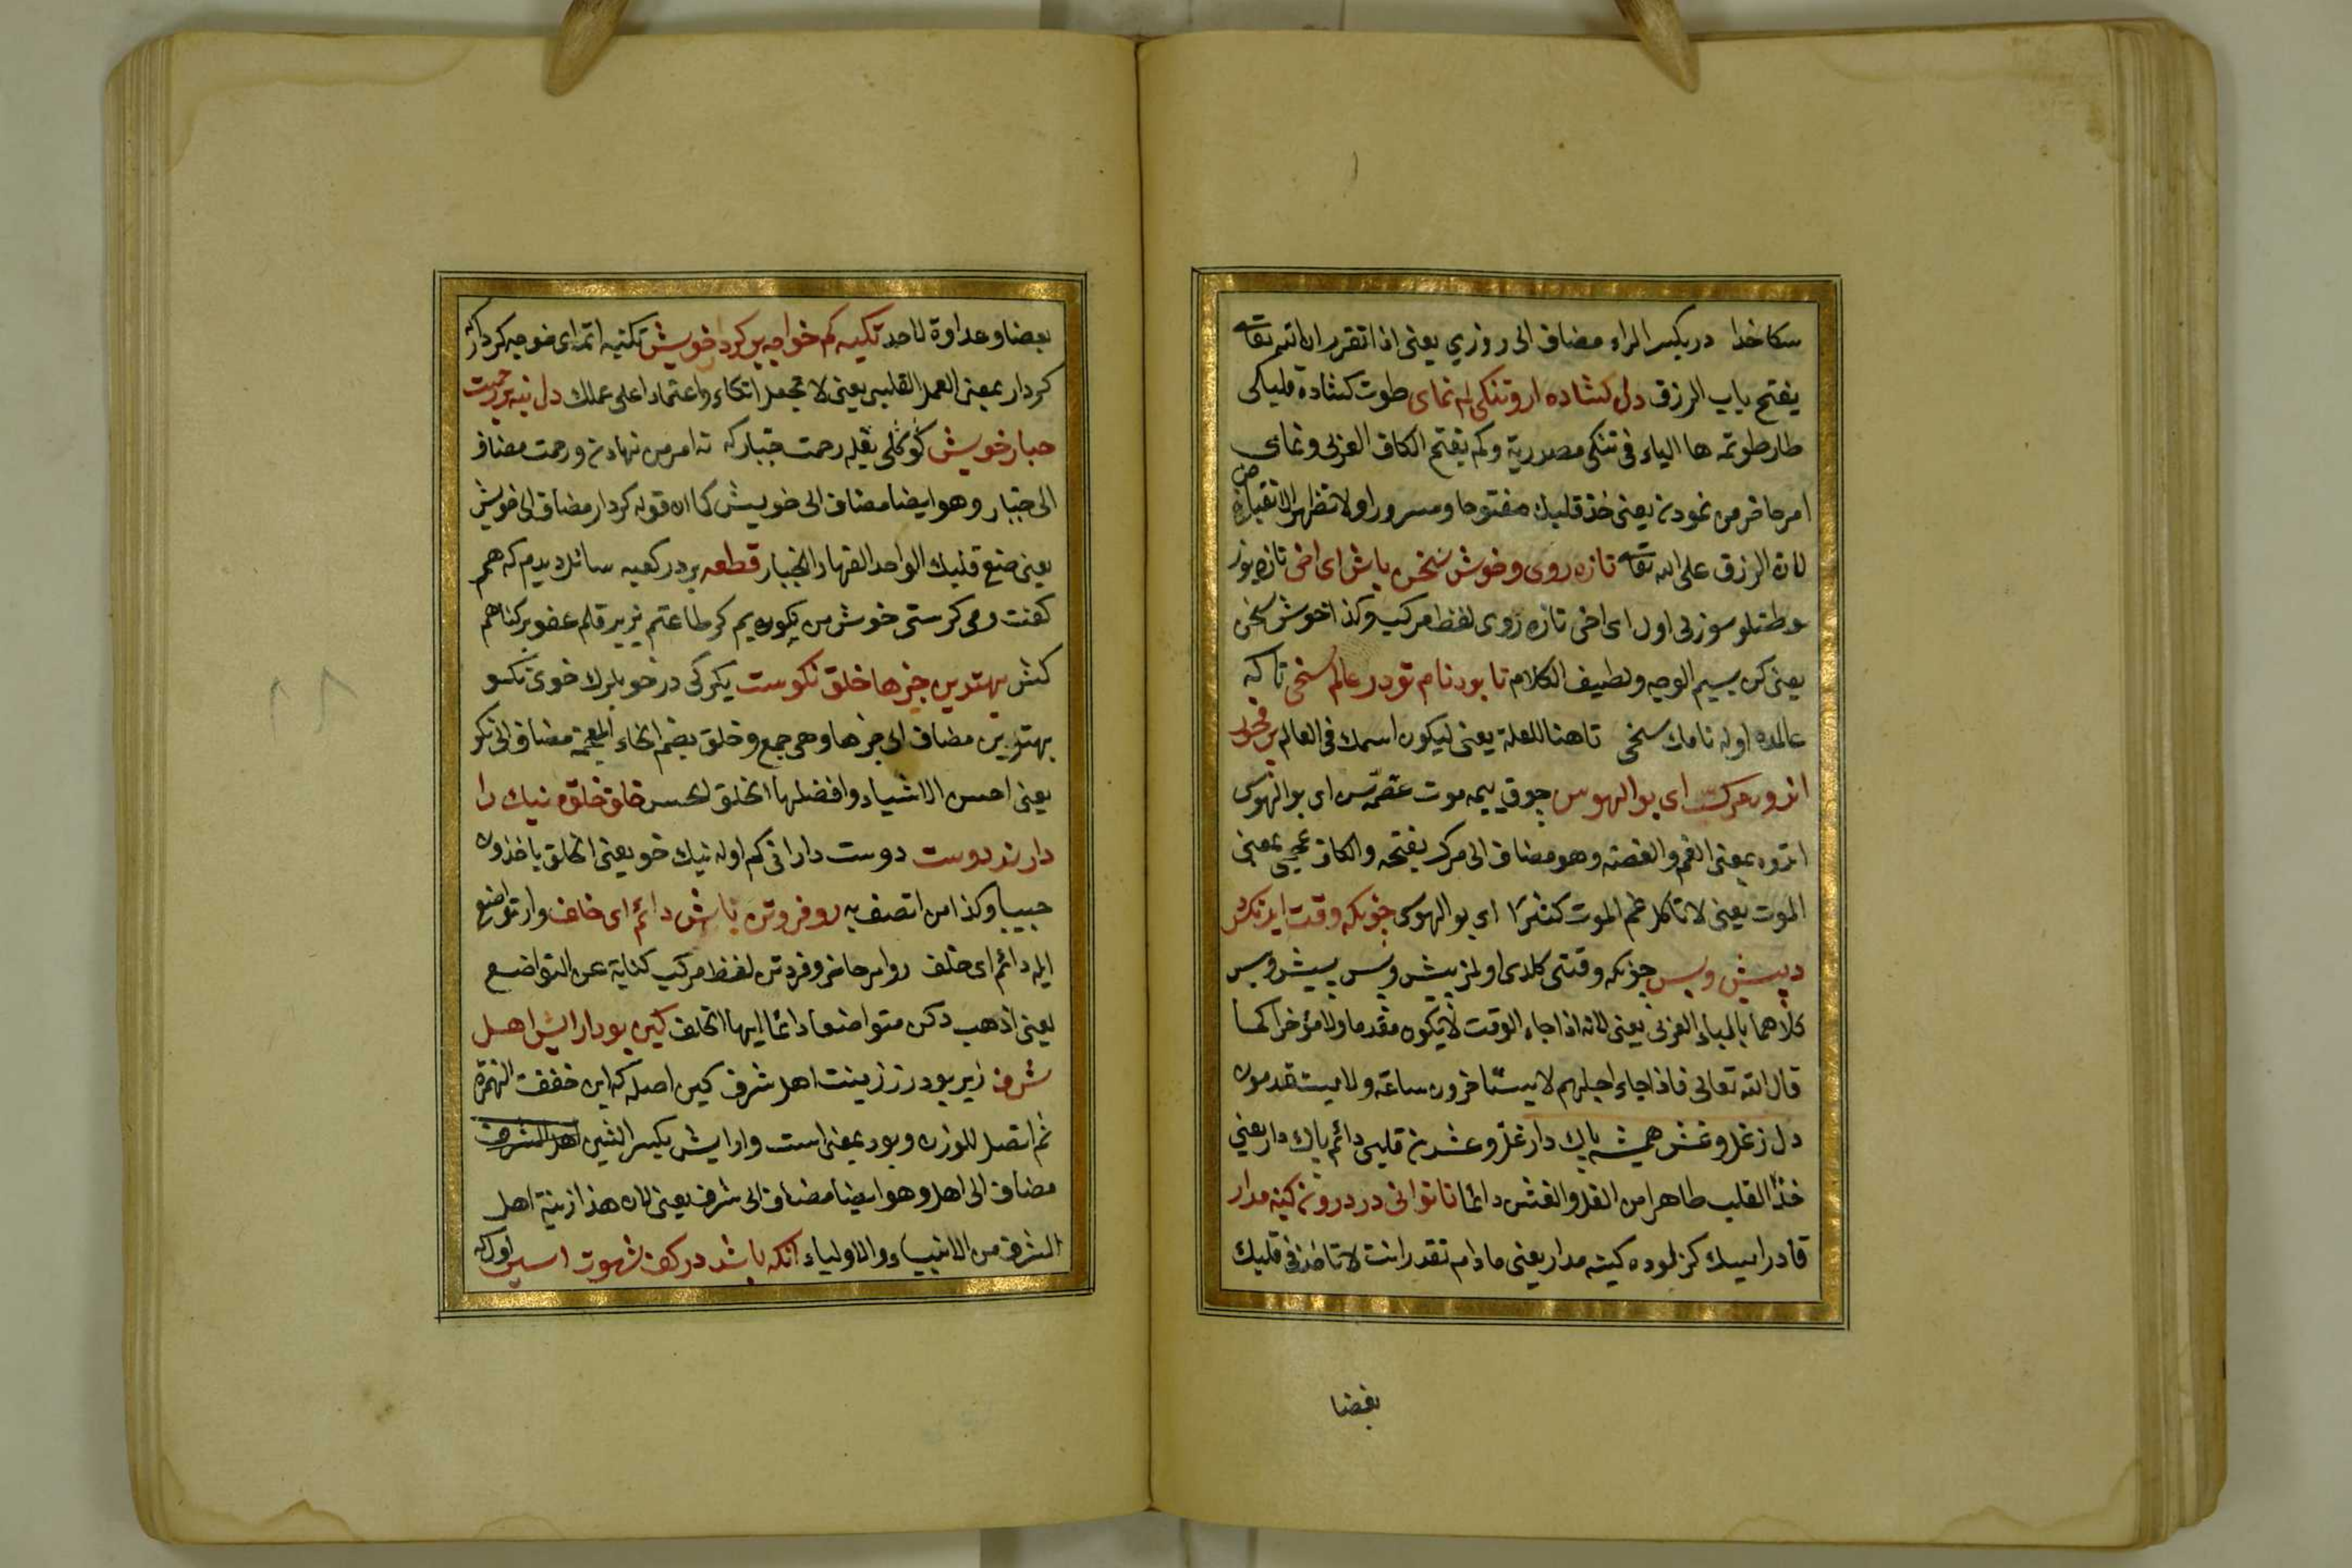 سكا خدا در بكسر الراء مضاف الى روزي يعنى اذا تقرر ان الله تعالى
يفتح باب الرزق دل كشاده دار وتنكى كم نماى طوت كشاده
طار طوتمه ها الياء فى تنكى مصدرية وكم بفتح الكاف العربى ونماى
امر حاضر من نمودن يعنى خذ قلبك مفتوحا ومسرورا ولا تظهر الانقباض
لان الرزق على الله تعالى تازه روى وخوش سخن باش اى اخى تازه يوز
وطتلو سوزلى اول اى اخى تازه روى لفظ مركب وكذا خوش سخن
يعنى كن بسيم الوجه ولطيف الكلام تا بود نام تو در عالم سخى تا كه
عالمده اوله نامك سخى تا هنا للعلة يعنى ليكون اسمك فى العالم
اندوه مركت اى بو الهوس چوق ييمه موت اى بو الهوس
اندوه بمعنى الغم والغصة وهو مضاف الى مرك بفتحه والكاف عجمى بمعنى
الموت يعنى لا تأكل غم الموت كثيرا اى بو الهوس چونكه وقت ايد نكردد
پيش وپس چونكه وقتى كلدى اولمز پيش وپس پيش وپس
كلاهما بالباء العربى يعنى لانه اذا جاء الوقت لا يكون مقدما ولا مؤخرا كما
قال الله تعالى فاذا جاء اجلهم لا يستأخرون ساعة ولا يستقدمون
دل ز غل وغش هميشه پاك دار غل وغشدن قلبى دائم پاك دار يعنى
خذ القلب طاهرا من الغل والغش دائما تا توانى در درونت كينه مدار
قادر ايسك كزلوده كينه مدار يعنى مادام تقدر انت لا تأخذ فى قلبك
بغضا
بغضا وعداوة لاحد تكيه كم خواجه بر كردار خويش تكيه اتمه اى خوجه كردار
كردار بمعنى العمل القلبى يعنى لا تجعل اتكاء واعتمادا على عملك دل بنه بر رحمت
جبار خويش كوكلى رحمت جباركه نه امر من نهادن ورحمت مضاف
الى جبار وهو ايضا مضاف الى خويش كما ان قوله كردار مضاف الى خويش
يعنى ضع قلبك الواحد القهار الجبار قطعه بر در كعبه سائل ديدم كه هم
كفت ومى كرستى خوش من نكويم كه طاعتم بپذير قلم عفو بر كناهم
كش بهترين چيزها خلق نكوست يكركى در خويلرك خوى نكو
بهترين مضاف الى چيزها وهى جمع وخلق بضم الخاء المعجمة مضاف الى نكو
يعنى احسن الاشياء وافضلها الخلق الحسن خلق خلق نيك را
دارند دوست دوست دارانى كم اوله نيك خو يعنى الخلق يأخذون
حبيبا وكذا من اتصف به رو فروتن باش دائم اى خلف وار تواضع
ايله دائم اى خلف رو امر حاضر وفروتن لفظ مركب كناية عن التواضع
يعنى اذهب وكن متواضعا دائما ايها الخلف كين بود آرايش اهل
شرف زير بودر زينت اهل شرف كين اصله كه اين خففت الهمزة
ثم اتصل للوزن وبود بمعنى است وارايش بكسر الشين اهل الشرف
مضاف الى اهل وهو ايضا مضاف الى شرف يعنى لان هذا زينة اهل
الشرف من الانبياء والاولياء انكه باشد در كف شهوت اسير اول كه